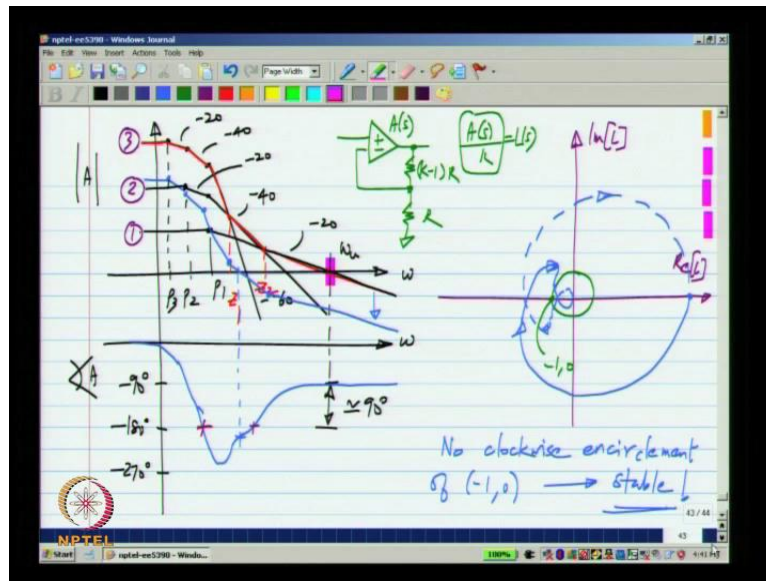 nptel-ee5390 - Windows Journal
File Edit View Insert Actions Tools Help
Page Width
B I
|A|
③
②
①
-20
-40
-20
-40
-20
-60
ωu
ω
p3 p2 p1
ω
∠A
-90°
-180°
-270°
≃90°
A(s)
±
(k-1)R
R
A(s)/k = L(s)
Im[L]
Re[L]
-1,0
No clockwise encirclement
of (-1,0) → stable!
43 / 44
43
NPTEL
Start
nptel-ee5390 - Windo...
100%